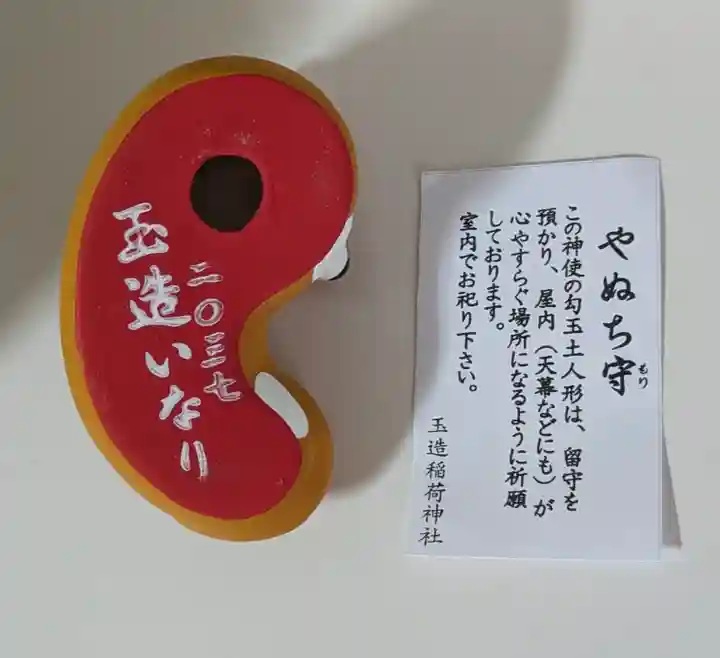 玉造いなり
二〇三七
やぬち守
もり
この神使の勾玉土人形は、留守を
預かり、屋内（天幕などにも）が
心やすらぐ場所になるように祈願
しております。
室内でお祀り下さい。
玉造稲荷神社